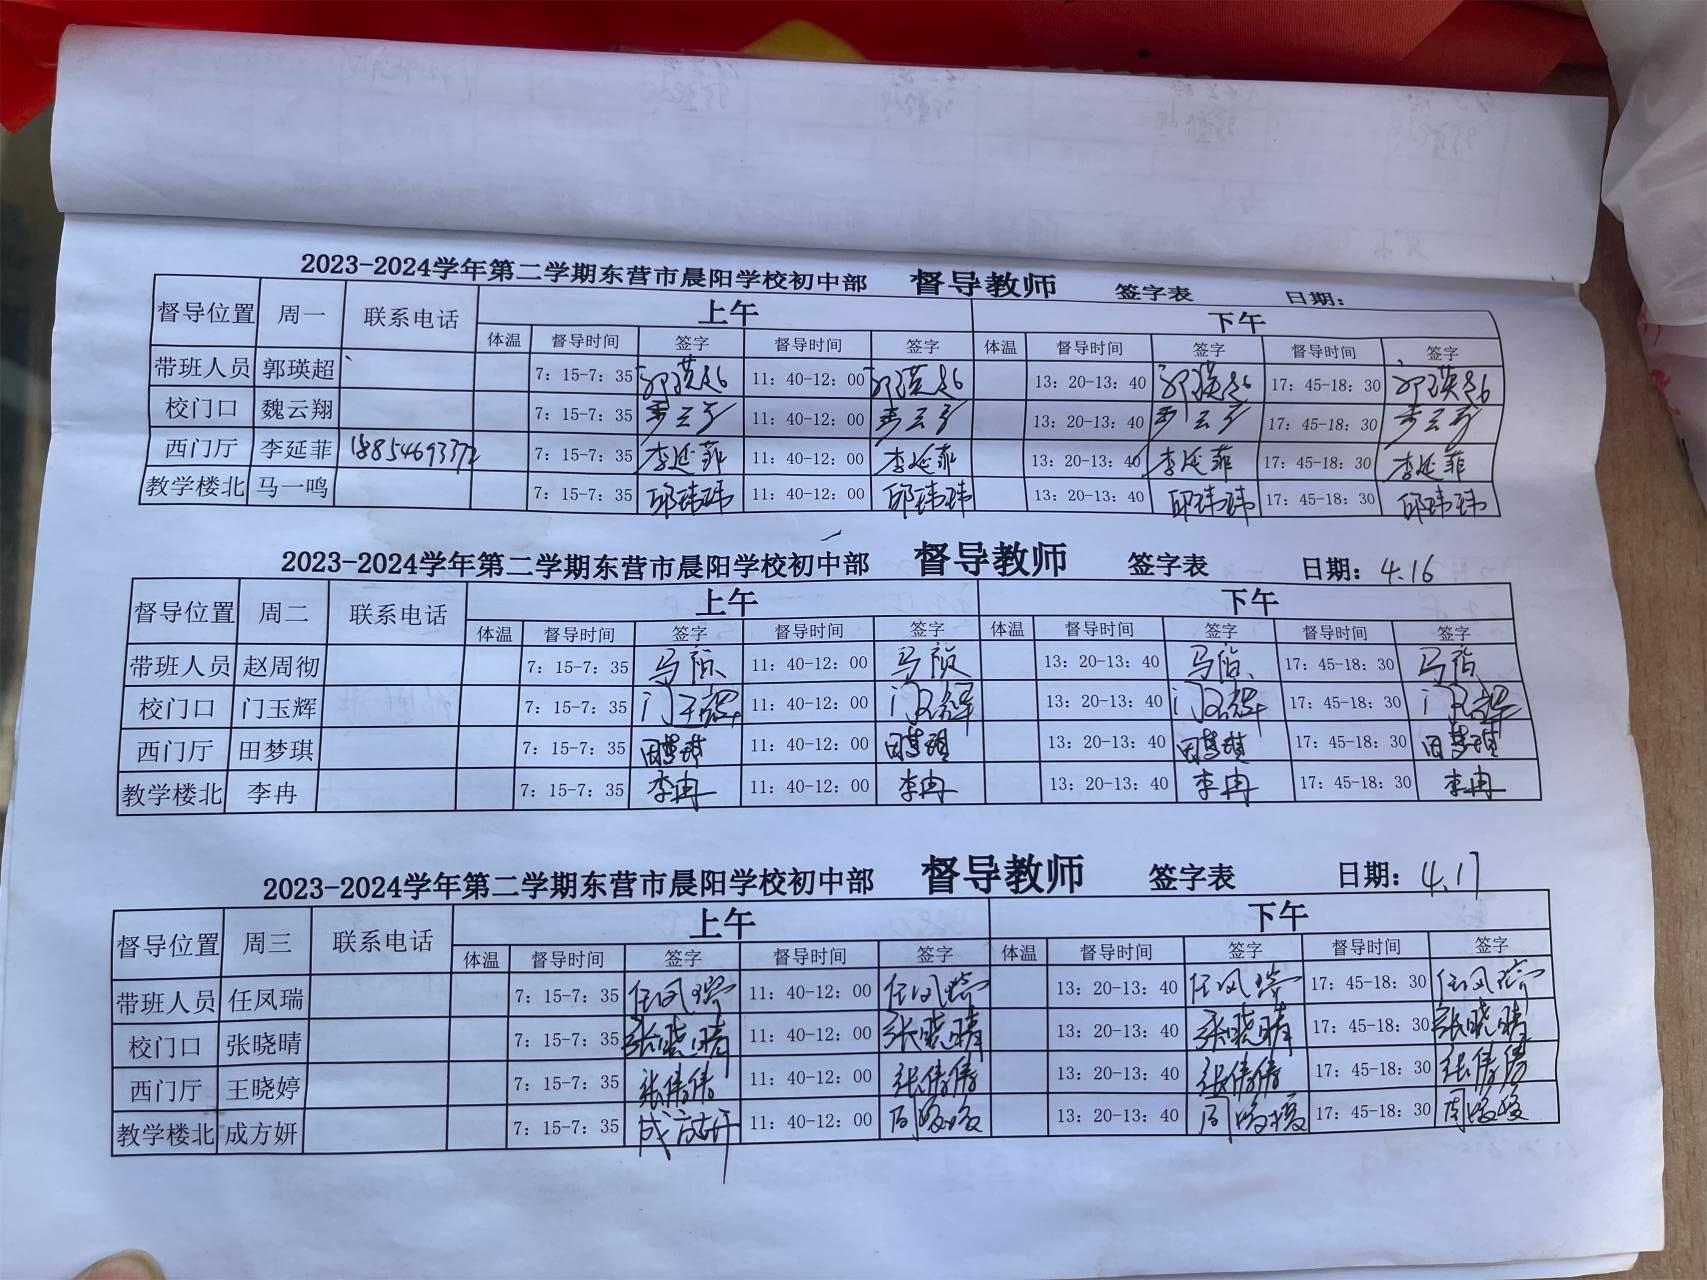 2023-2024学年第二学期东营市晨阳学校初中部 督导教师 签字表 日期：
督导位置 周一 联系电话 上午 下午
体温 督导时间 签字 督导时间 签字 体温 督导时间 签字 督导时间 签字
带班人员 郭瑛超 7：15-7：35 郭瑛超 11：40-12：00 郭瑛超 13：20-13：40 郭瑛超 17：45-18：30 郭瑛超
校门口 魏云翔 7：15-7：35 11：40-12：00 13：20-13：40 17：45-18：30
西门厅 李延菲 18854693772 7：15-7：35 李延菲 11：40-12：00 李延菲 13：20-13：40 李延菲 17：45-18：30 李延菲
教学楼北 马一鸣 7：15-7：35 邱玮玮 11：40-12：00 邱玮玮 13：20-13：40 邱玮玮 17：45-18：30 邱玮玮
2023-2024学年第二学期东营市晨阳学校初中部 督导教师 签字表 日期：4.16
督导位置 周二 联系电话 上午 下午
体温 督导时间 签字 督导时间 签字 体温 督导时间 签字 督导时间 签字
带班人员 赵周彻 7：15-7：35 11：40-12：00 13：20-13：40 17：45-18：30
校门口 门玉辉 7：15-7：35 门玉辉 11：40-12：00 门玉辉 13：20-13：40 门玉辉 17：45-18：30 门玉辉
西门厅 田梦琪 7：15-7：35 田梦琪 11：40-12：00 田梦琪 13：20-13：40 田梦琪 17：45-18：30 田梦琪
教学楼北 李冉 7：15-7：35 李冉 11：40-12：00 李冉 13：20-13：40 李冉 17：45-18：30 李冉
2023-2024学年第二学期东营市晨阳学校初中部 督导教师 签字表 日期：4.17
督导位置 周三 联系电话 上午 下午
体温 督导时间 签字 督导时间 签字 体温 督导时间 签字 督导时间 签字
带班人员 任凤瑞 7：15-7：35 任凤瑞 11：40-12：00 任凤瑞 13：20-13：40 任凤瑞 17：45-18：30 任凤瑞
校门口 张晓晴 7：15-7：35 张晓晴 11：40-12：00 张晓晴 13：20-13：40 张晓晴 17：45-18：30 张晓晴
西门厅 王晓婷 7：15-7：35 张倩倩 11：40-12：00 张倩倩 13：20-13：40 张倩倩 17：45-18：30 张倩倩
教学楼北 成方妍 7：15-7：35 成方妍 11：40-12：00 13：20-13：40 17：45-18：30